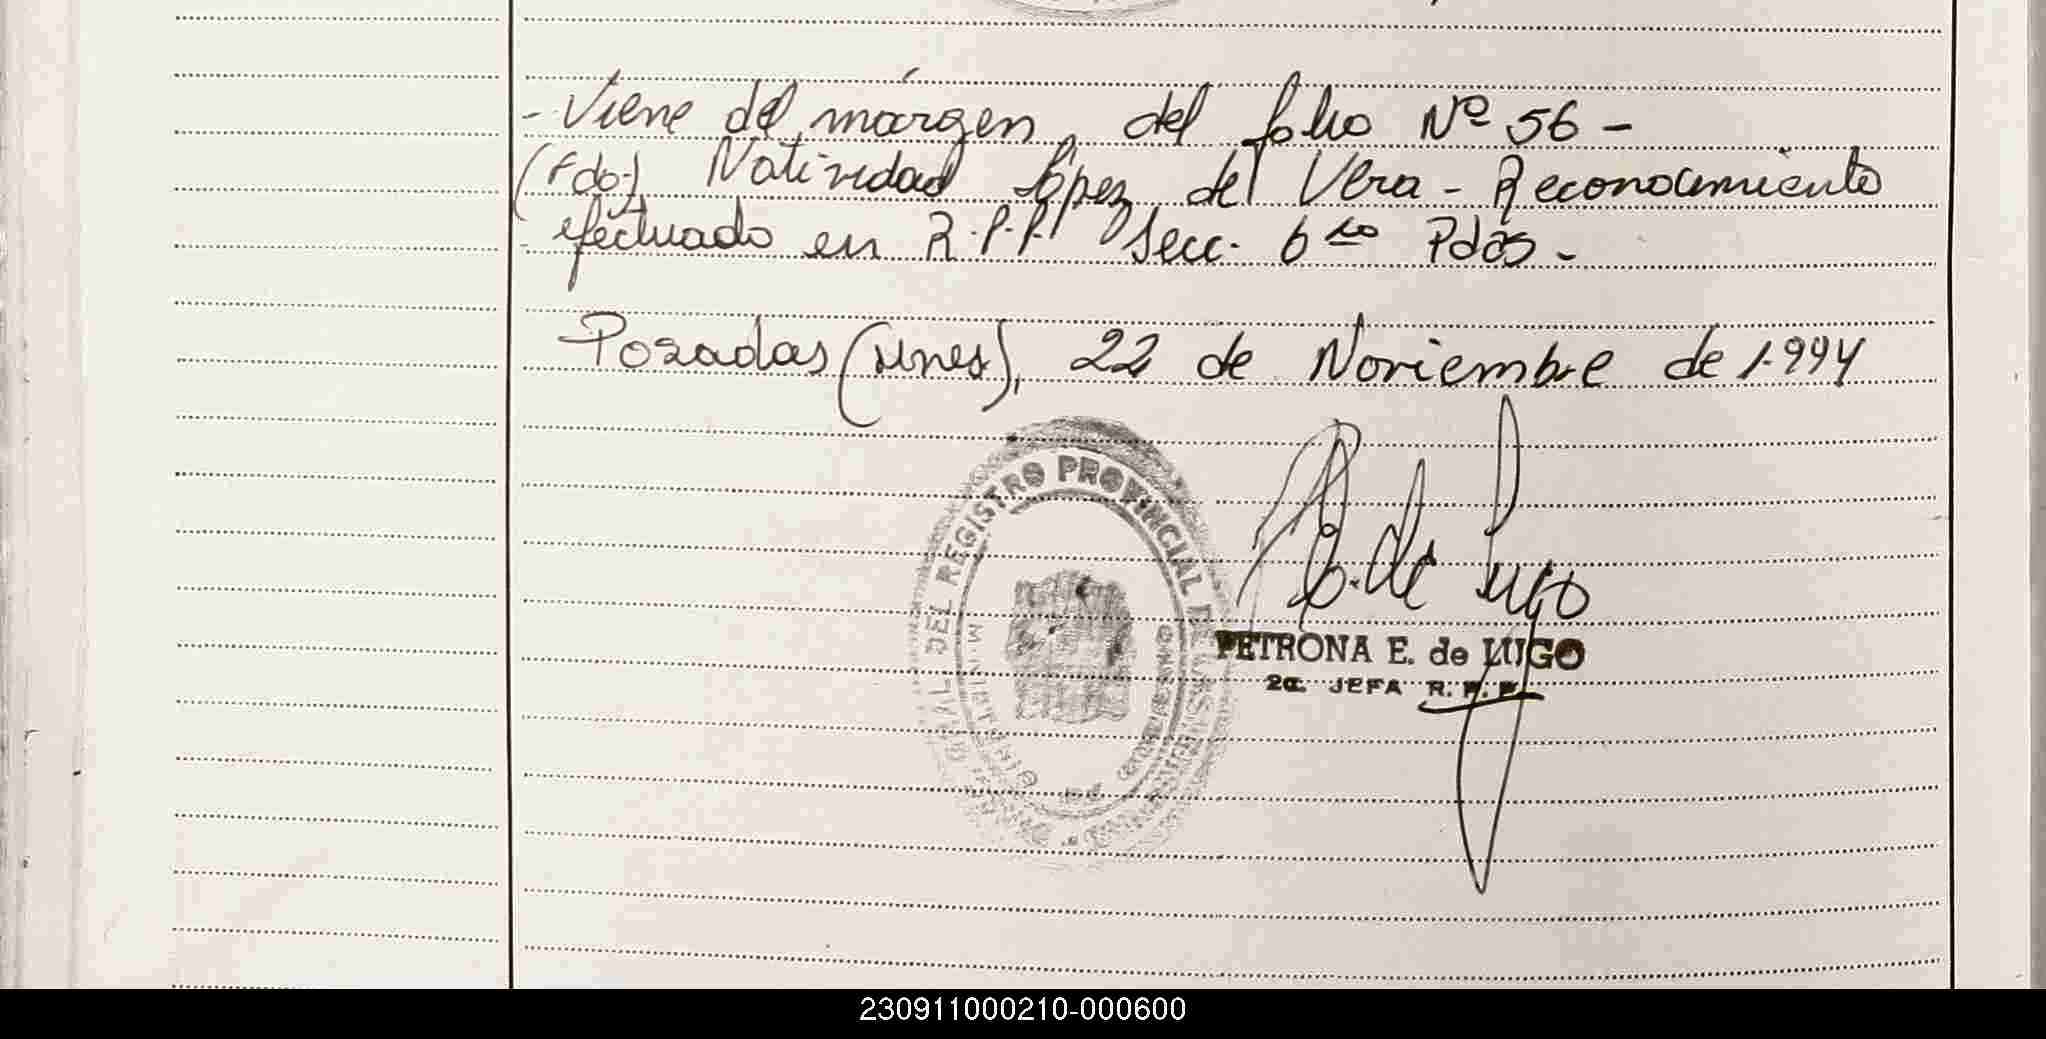 - Viene del márgen del folio Nº 56 -
(Fdo.) Natividad López del Vera - Reconocimiento
efectuado en R.P.P. Secc. 6ta Pdas -
Posadas (Mnes), 22 de Noviembre de 1.994
DEL REGISTRO PROVINCIAL DE
P. E. de Lugo
PETRONA E. de LUGO
2a. JEFA R. P. P.
230911000210-000600